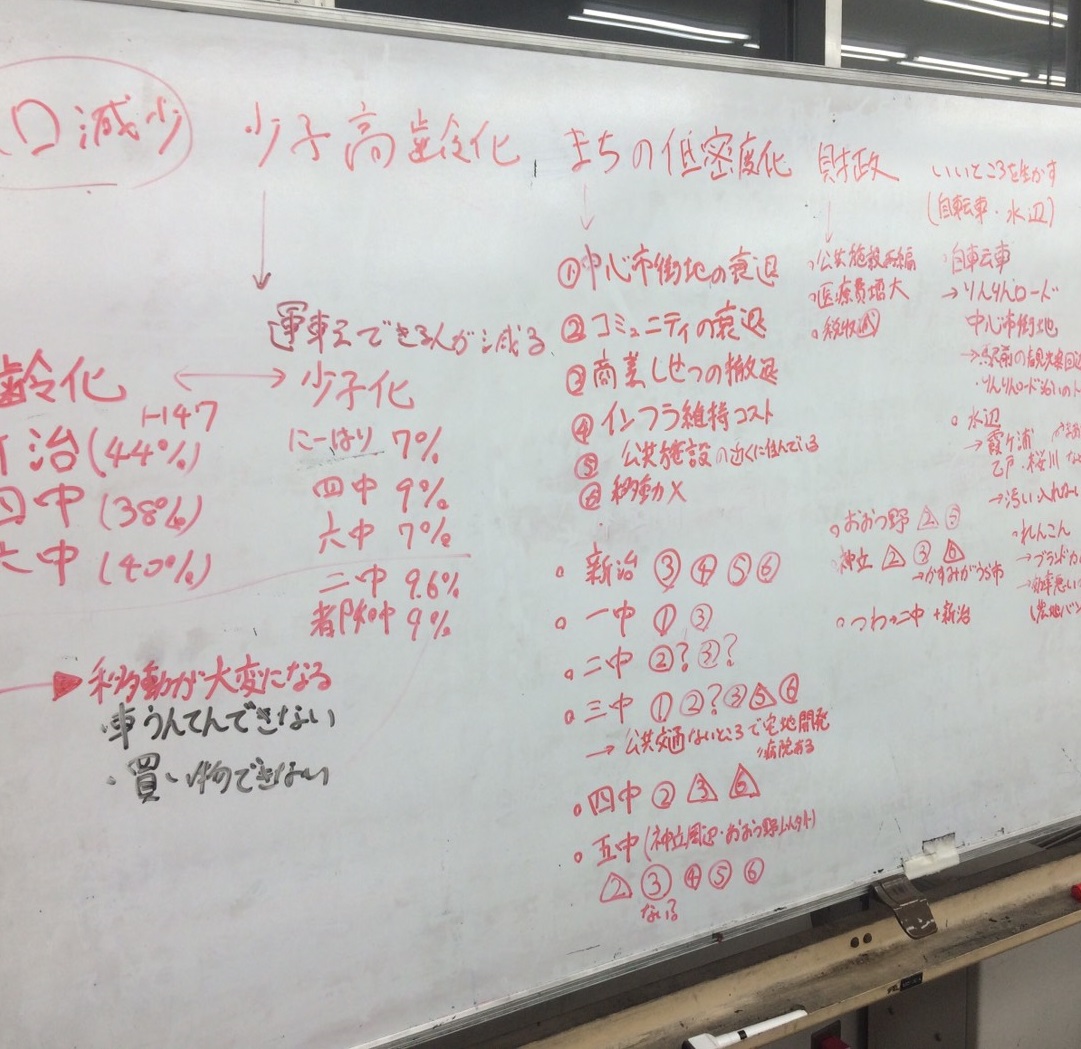 口減少
少子高齢化
運転できる人が減る
齢化 ←→ 少子化
治(44%)
四中(38%)
六中(40%)
にーはり 7%
四中 9%
六中 7%
二中 9.6%
都和中 9%
→ 移動が大変になる
・車うんてんできない
・買い物できない
まちの低密度化
①中心市街地の衰退
②コミュニティの衰退
③商業しせつの撤退
④インフラ維持コスト
⑤ 公共施設の近くに住んでいる
⑥移動×
○ 新治 ③ ④ ⑤ ⑥
○ 一中 ① ③
○ 二中 ②? ③?
○ 三中 ① ②? ③ 5 ⑥
→ 公共交通ないところで宅地開発
病院ある
○ 四中 ② 3 6
○ 五中(神立周辺・おおつ野以外)
2 ③ ④ ⑤ ⑥
ない
財政
○公共施設再編
○医療費増大
○税収減
○おおつ野 2 ⑤
神立 2 ③ 6
→かすみがうら市
○つわ→二中+新治
いいところを生かす
(自転車・水辺)
・自転車
→りんりんロード
中心市街地
→駅前の観光案
・りんりんロード沿いの
○ 水辺
→霞ヶ浦
乙戸・桜川
→汚い
○れんこん
→ブランド
→効率悪い
(農地バン